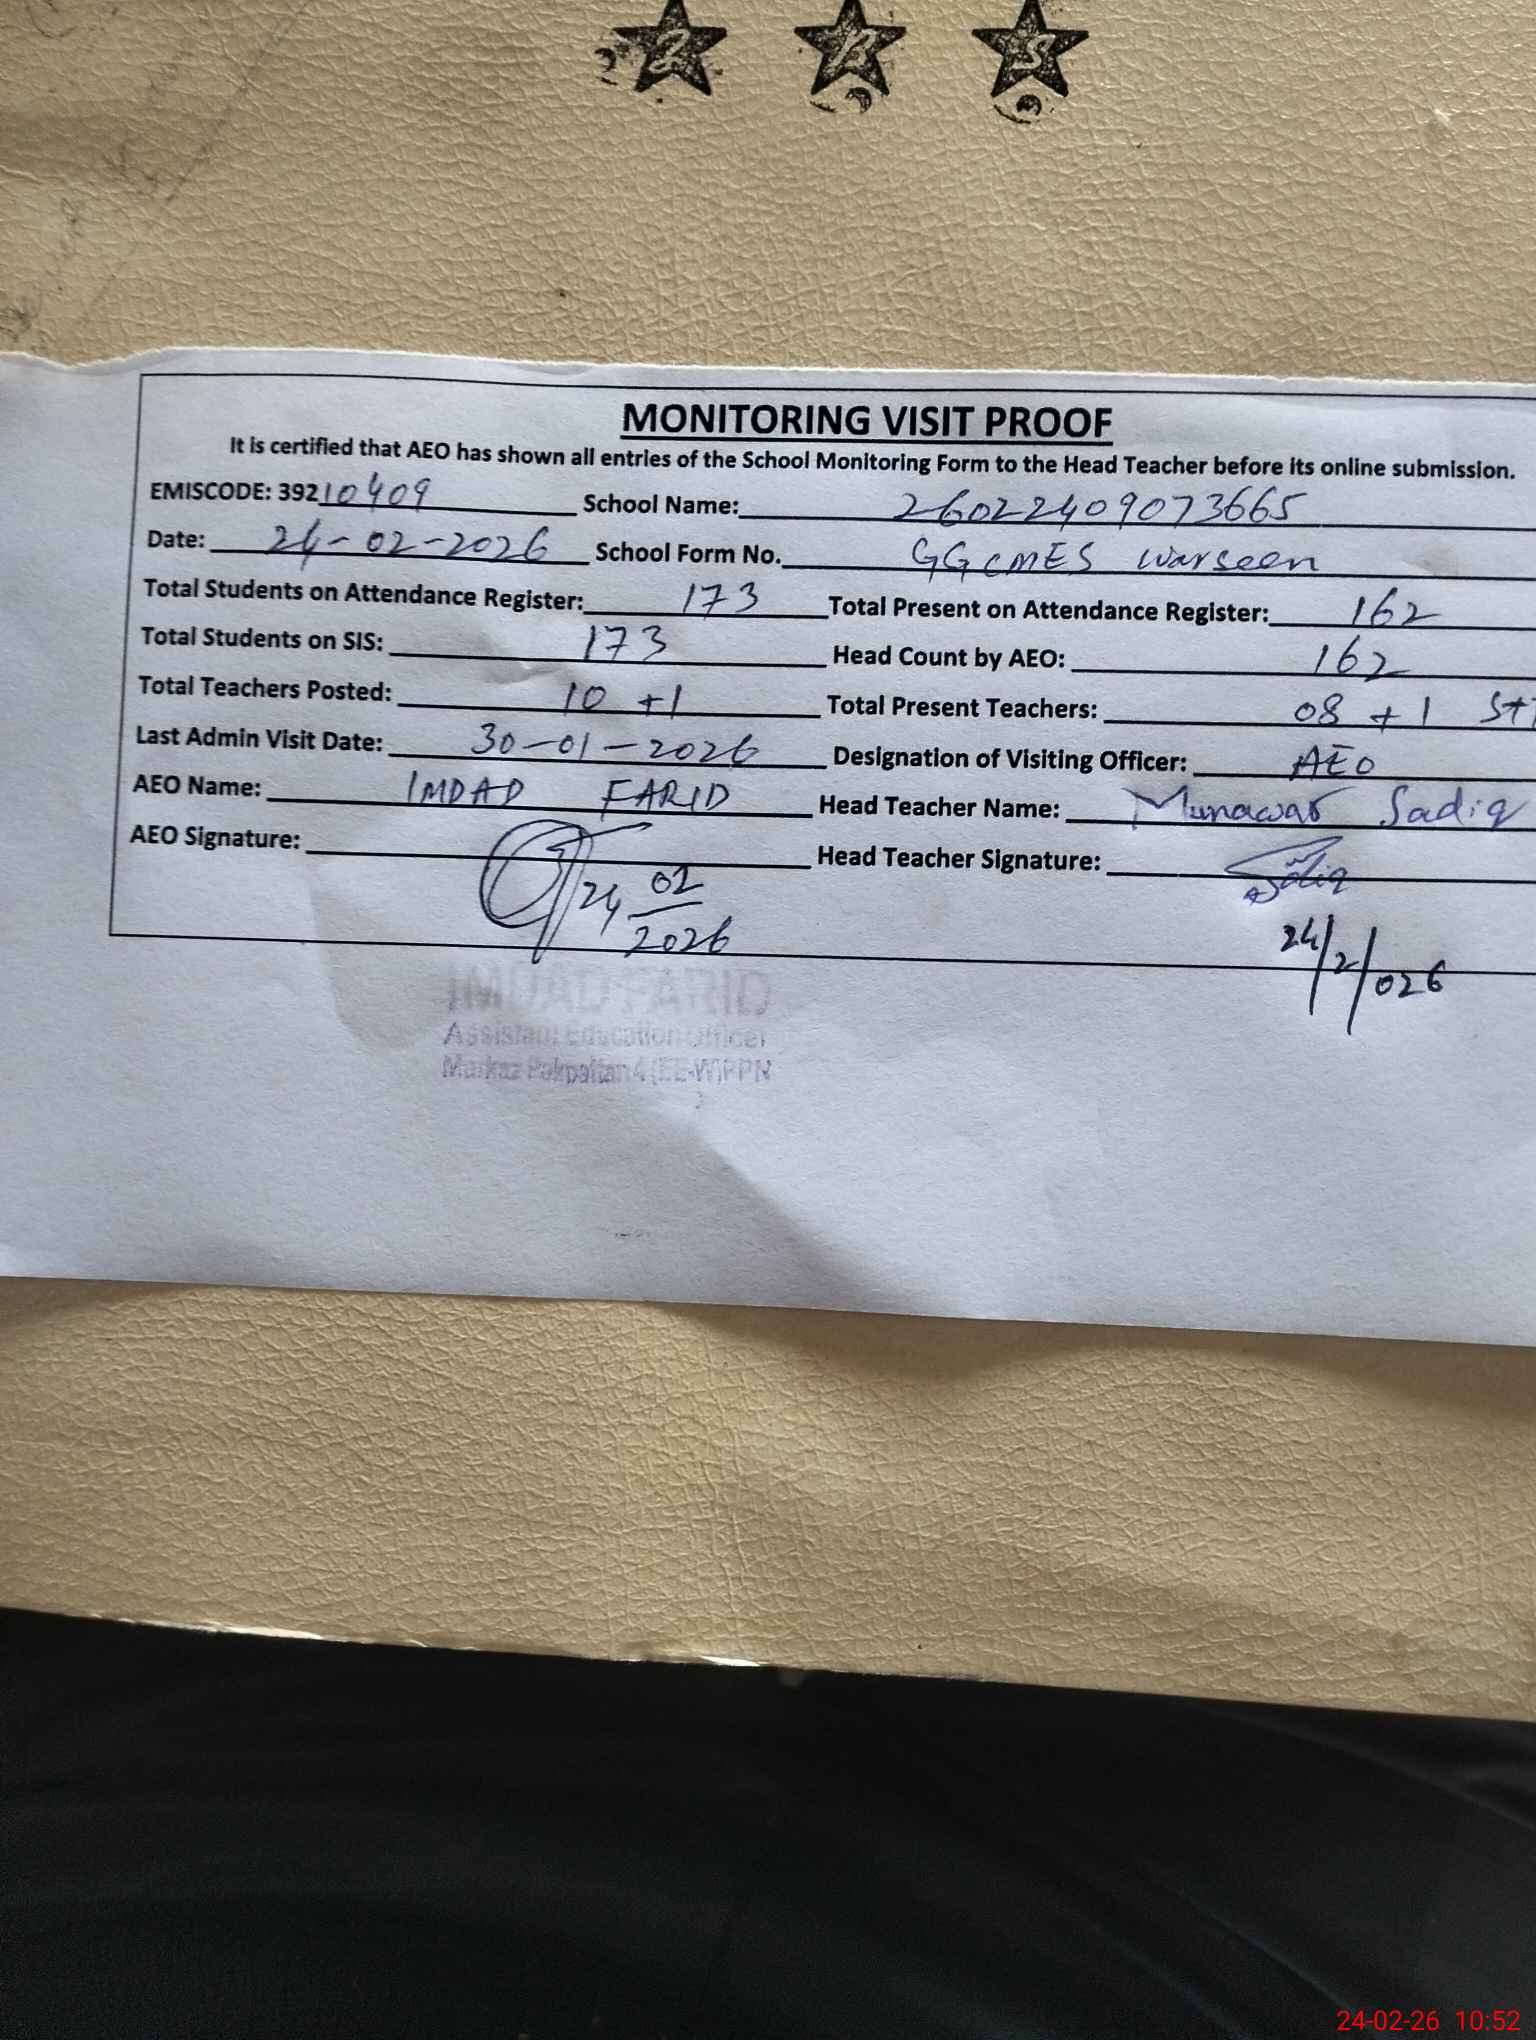 MONITORING VISIT PROOF
It is certified that AEO has shown all entries of the School Monitoring Form to the Head Teacher before its online submission.
EMISCODE: 39210409 School Name: 26022409073665
Date: 24-02-2026 School Form No. GGCMES Warseen
Total Students on Attendance Register: 173 Total Present on Attendance Register: 162
Total Students on SIS: 173 Head Count by AEO: 162
Total Teachers Posted: 10 +1 Total Present Teachers: 08 + 1 STI
Last Admin Visit Date: 30-01-2026 Designation of Visiting Officer: AEO
AEO Name: IMDAD FARID Head Teacher Name: Munawar Sadiq
AEO Signature: Head Teacher Signature: Sadiq
24 02
2026
24/2/026
IMDAD FARID
Assistant Education Officer
Markaz Pakpattan 4 (EE-W) PPN
24-02-26 10:52